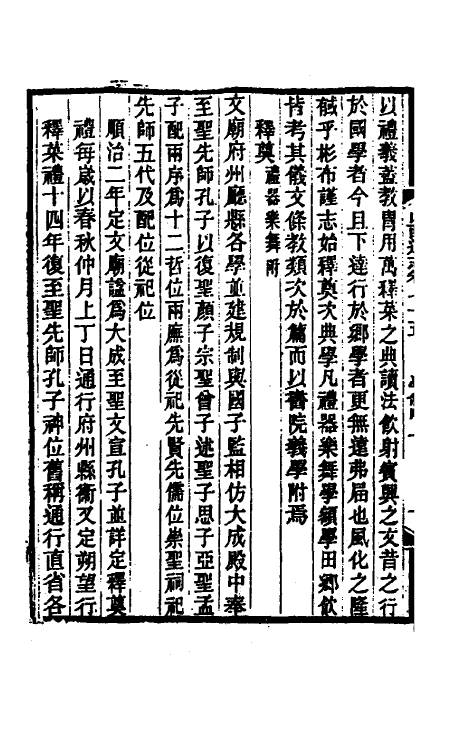 以禮義蓋教胄用萬釋菜之典讀法飲射賓興之文昔之行
於國學者今且下達行於鄉學者更無遠弗屆也風化之隆
棫乎彬布謹志始釋奠次典學凡禮器樂舞學額學田鄉飲
皆考其儀文條教類次於篇而以書院義學附焉
釋奠禮器樂舞附
文廟府州廳縣各學並建規制與國子監相仿大成殿中奉
至聖先師孔子以復聖顏子宗聖曾子述聖子思子亞聖孟
子配兩序為十二哲位兩廡為從祀先賢先儒位崇聖祠祀
先師五代及配位從祀位
順治二年定文廟諡為大成至聖文宣孔子並詳定釋奠
禮每歲以春秋仲月上丁日通行府州縣衛又定朔望行
釋菜禮十四年復至聖先師孔子神位舊稱通行直省各